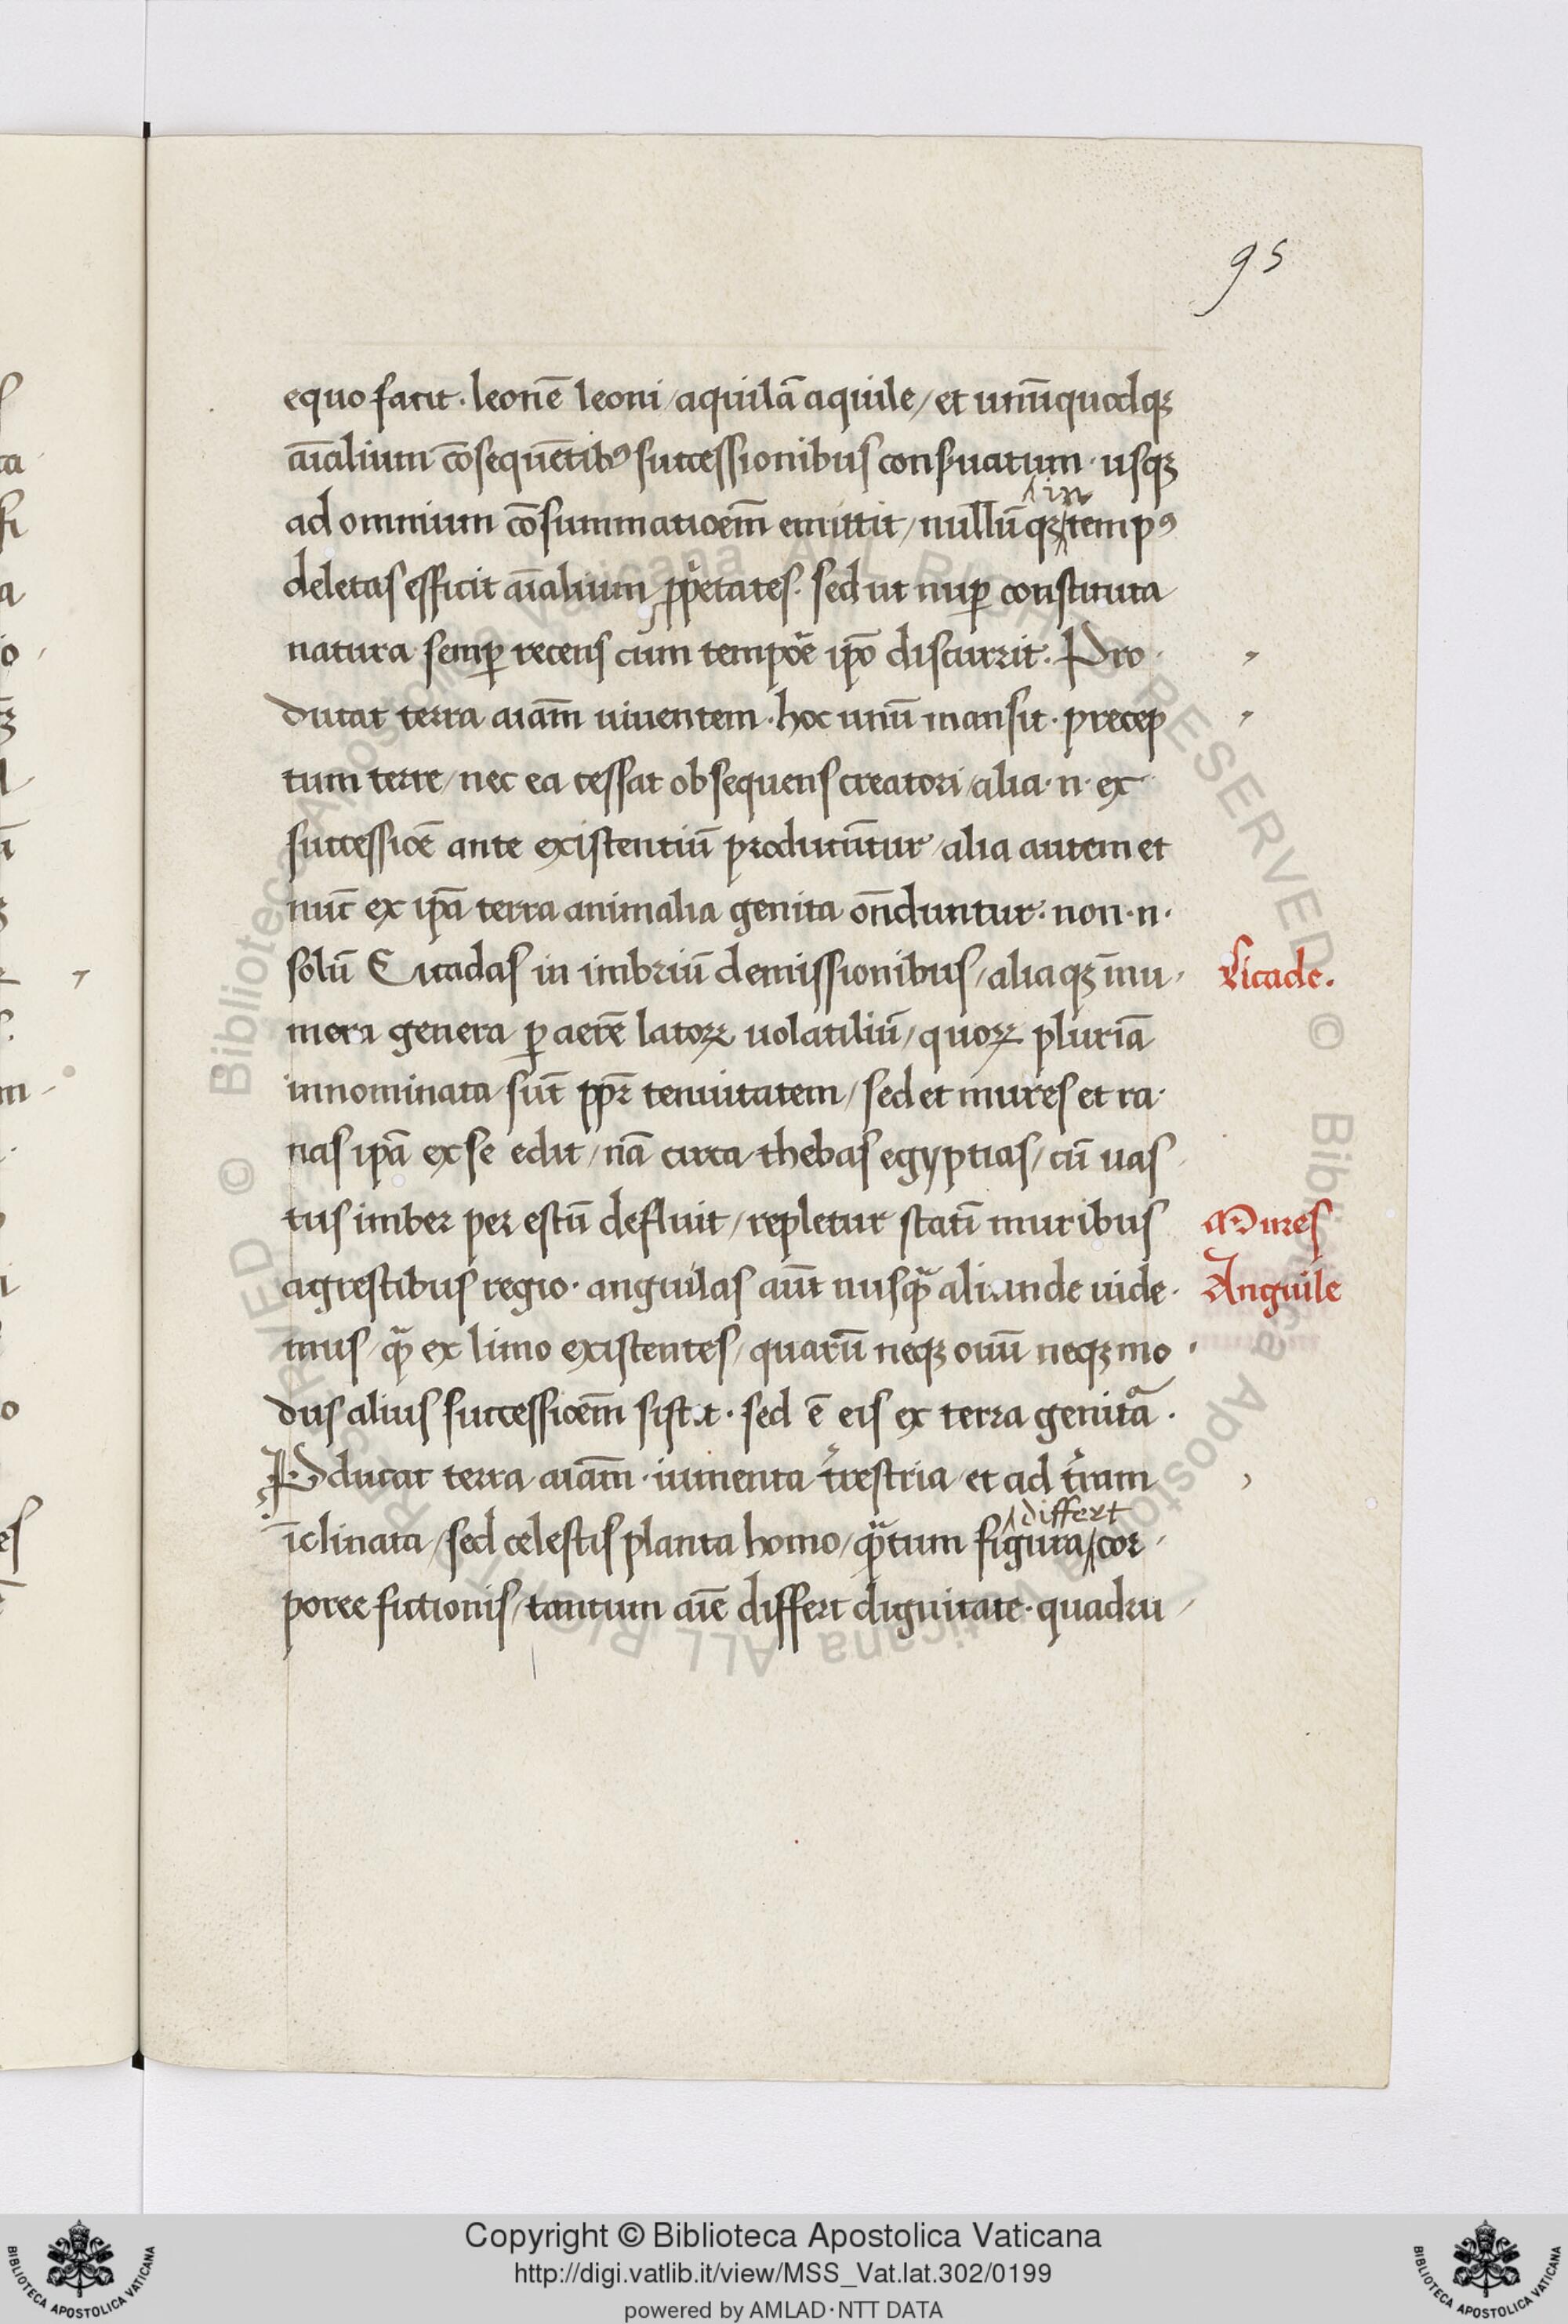 95
equo facit. leonē leoni/aquilā aquile/et unūquodqꝫ
aīalium cōsequētibꝰ successionibus conseruatum · usqꝫ
in
ad omnium cōsummatioēm emittit/nullūqꝫ tempꝰ
deletas efficit aīalium ꝓpͥetates. sed ut nuꝑ constituta
natura semꝑ recens cum tempōe ip̄o discurrit. Pro
ducat terra aīam uiuentem · hoc unū mansit · precep
tum terre/nec ea cessat obsequens creatori/alia · n · ex
successiōe ante existentiū producūtur/alia autem et
nūc ex ip̄a terra animalia genita on̄duntur. non · n ·
solū Cicadas in imbriū demissionibus/aliaqꝫ īnu
Cicade.
mera genera ꝑ aerē latoꝝ uolatiliū/quoꝝ pluriā
innominata sūt ppꝛ̄ tenuitatem/sed et mures et ra
nas ip̄a ex se edit/nā circa thebas egyptias/cū uas
tus imber per estū defluit/repletur statī muribus
Mures
agrestibus regio · anguilas aūt nusqᷓ aliunde uide
Anguile
mus/qᷓ ex limo existentes/quarū neqꝫ ouū neqꝫ mo
dus alius successioēm sistit · sed ē eis ex terra genitᷓa ·
Pducat terra aīam · iumenta tͬrestria et ad tͬram
differt
īclinata/sed celestis planta homo/qᷓtum figura cor
poree fictionis/tantum aīe differt dignitate · quadru
Copyright © Biblioteca Apostolica Vaticana
http://digi.vatlib.it/view/MSS_Vat.lat.302/0199
powered by AMLAD·NTT DATA
BIBLIOTECA APOSTOLICA VATICANA
BIBLIOTECA APOSTOLICA VATICANA